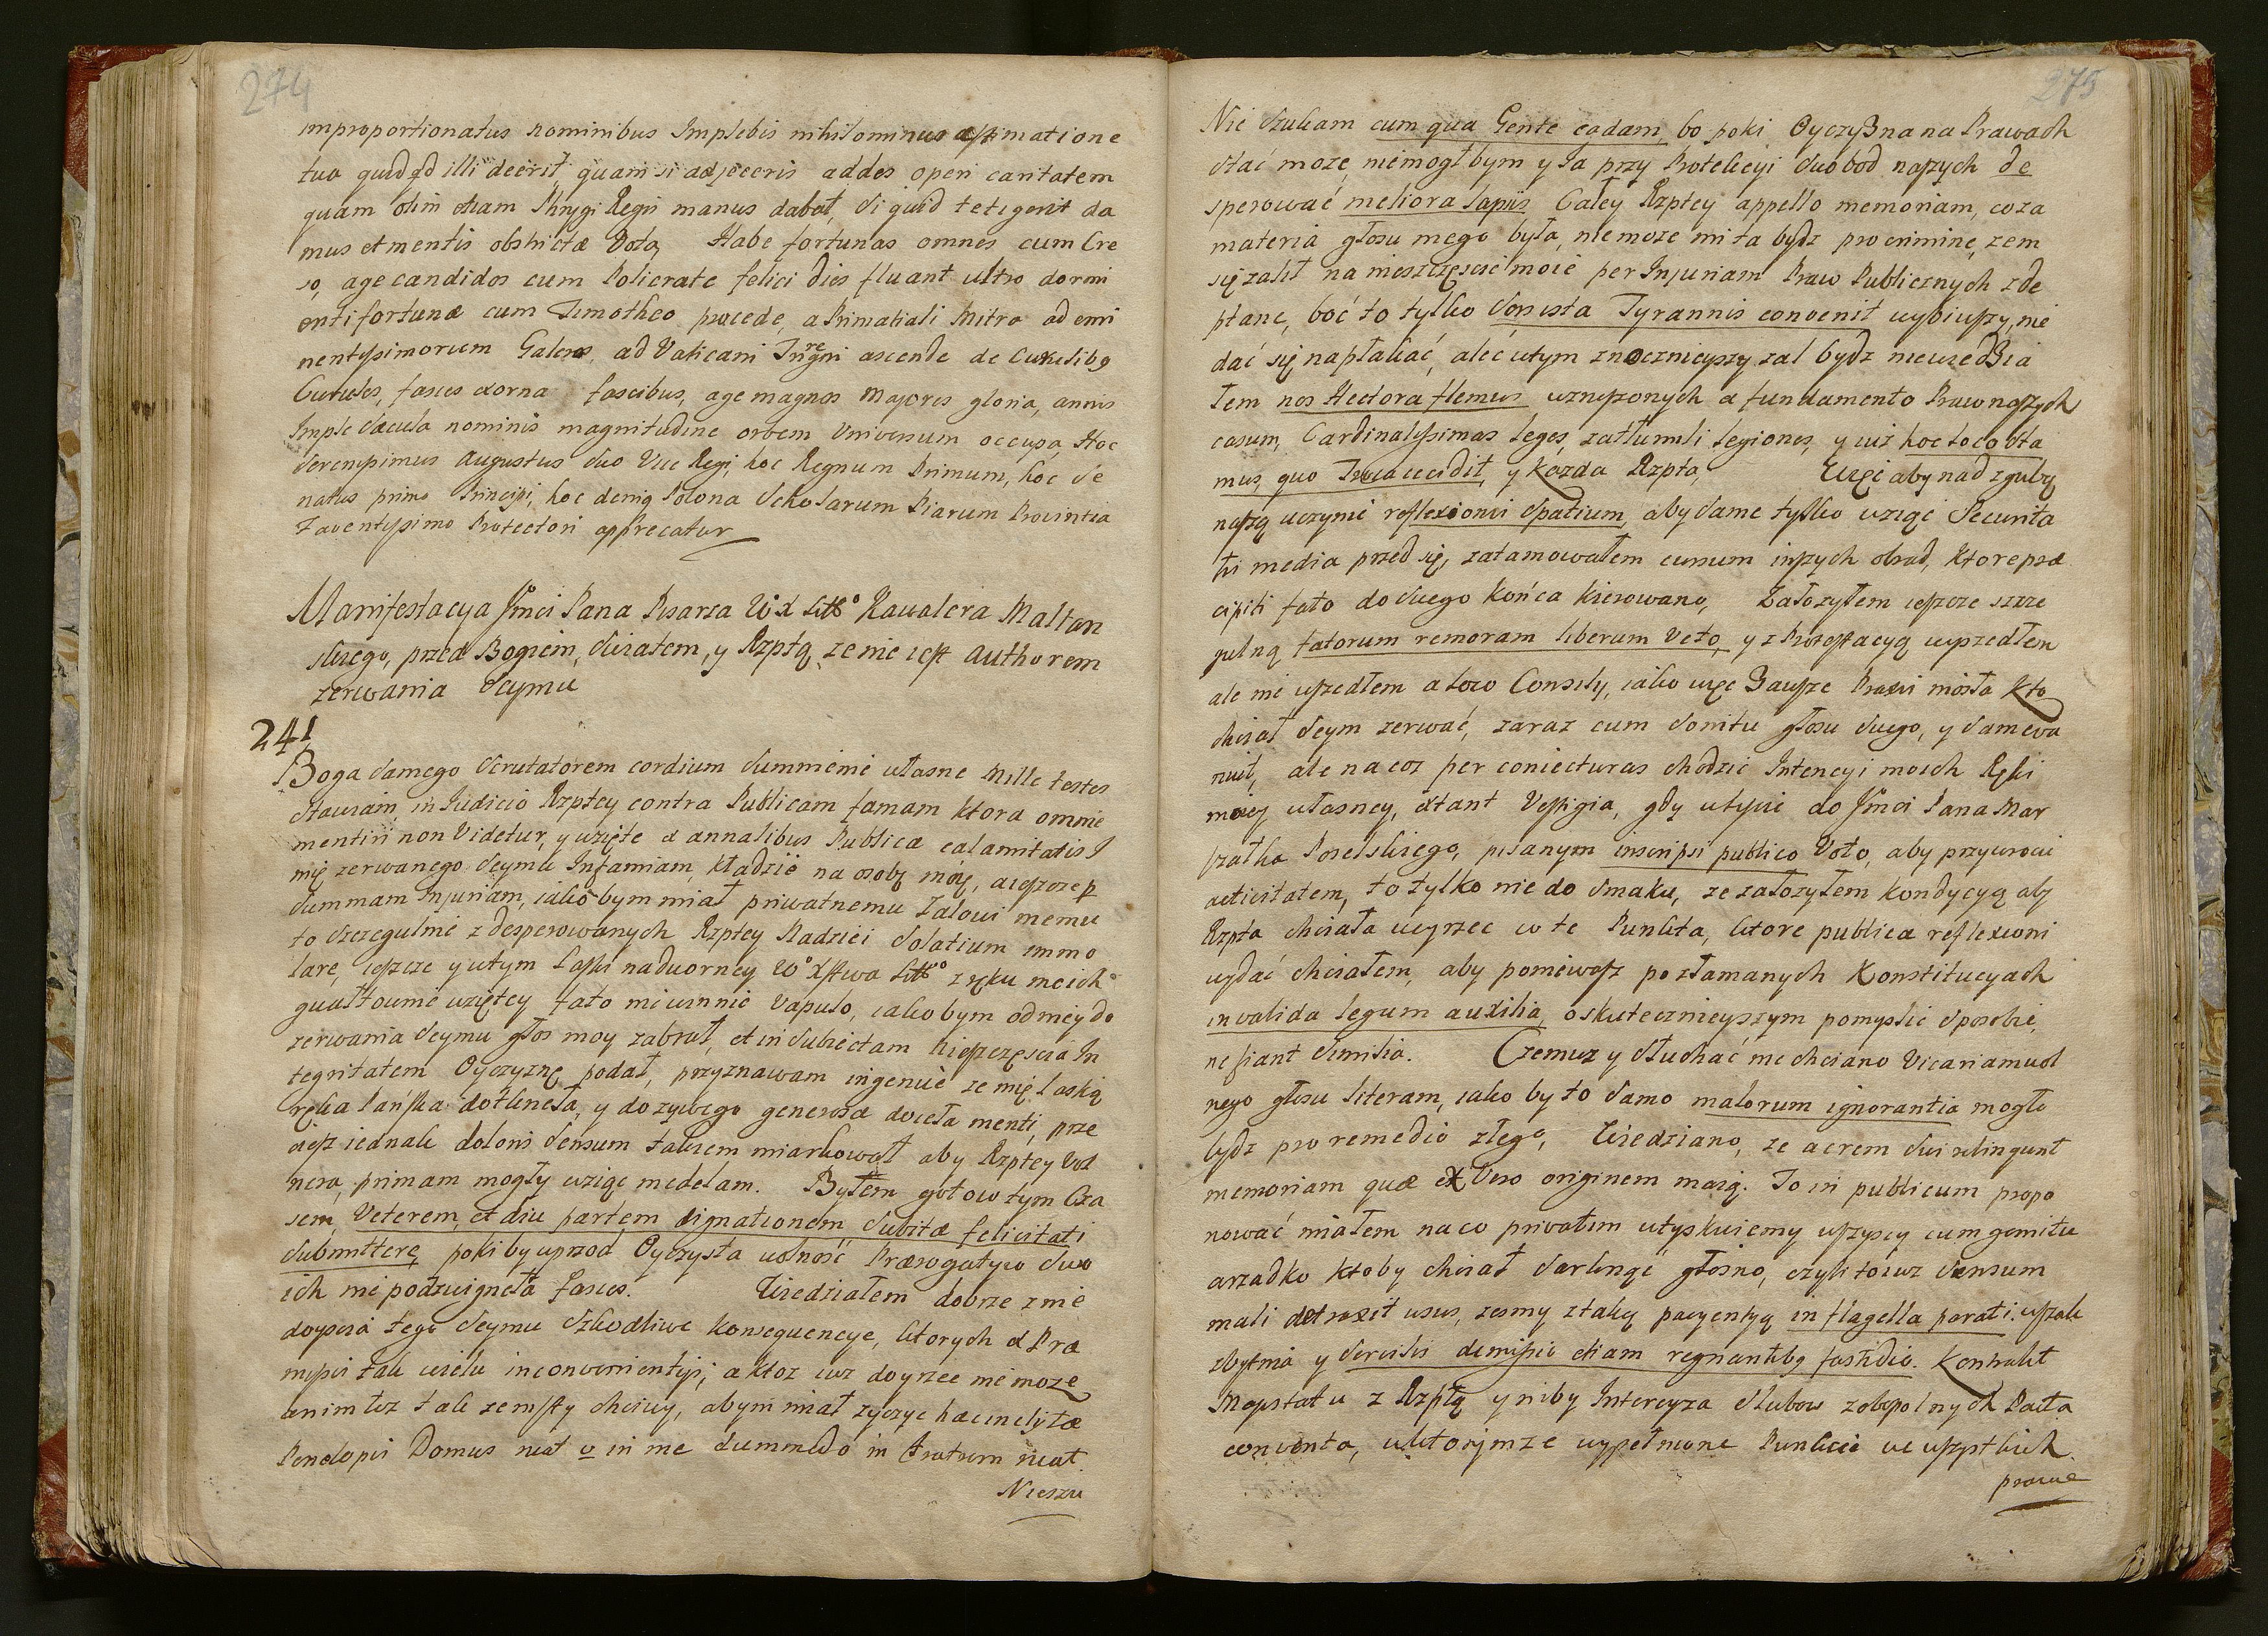 274
improportionatus nominibus Implebis nihilominus æstimatione
tua quid qd illi deerit quam si adjeceris addes operi caritatem
quam olim etiam Phrygi Regis manus dabat, si quid tetigerit da
mus et mentis obstrictæ Vota Habe fortunas omnes cum Cre
so, age candidos cum Policrate felici dies fluant ultro dormi
enti fortunæ cum Timotheo procede, a Primatiali Mitra ad emi
nentissimorum Galeros, ad Vaticani Tri regni ascende de Curulibq
Curules, fasces adorna fascibus, age magnos Majores gloria, annis
Imple sæcula nominis magnitudine orbem Universum occupa, Hoc
Serenissimus Augustus suo Vice Regi, hoc Regnum Primum, hoc Se
natus primo Principi, hoc deniq Polona Scholarum Piarum Provintia
Faventissimo Protectori apprecatur
Manifestacya Jmci Pana Pisarza W X Litto Kawalera Maltan
skiego, przed Bogiem, Swiatem, y Rzptą ze nie iest Authorem
zerwania Seymu
241
Boga samego Scrutatorem cordium summienie własne Mille testes
stawiam, in Iudicio Rzptey contra Publicam famam ktora omnie
mentiri non Videtur, y wzięte a annalibus Publicæ calamitatis I
mię zerwanego Seymu Infamiam, kładzie na osobę moię, a ieszcze p
summam Injuriam, iakobym miał priwatnemu Zalowi memu
to szczegulnie zdesperowanych Rzptey Nadziei Solatium immo
lare, ieszcze y wtym Laski nadworney Wo Xstwa Litto z ręku moich
gwałtownie wziętey fato niewinnie Vapulo, iakobym odmiey do
zerwania Seymu głos moy zabrał, et in subiectam nieszczęscia In
tegritatem Oyczyznę podał, przyznawam ingenuè ze mię Laską
ręka Pańska dotkneła, y dozywego generosæ docięła menti, prze
ciesz iednak doloris sensum takiem miarkował aby Rzptey Vul
nera, primam mogły wziąc medelam. Byłem gotow tym Cza
sem Veterem, et diu partem dignationem subitæ felicitati
submittere, poki by uprzod Oyczysta wolność Prærogatyw Swo
ich nie podzwigneła fasces. Wiedziałem dobrze znie
doyscia tego Seymu Szkodliwe konsequencye, ktorych a Præ
missis tak wielu inconvenientiis, a ktoz iusz doyrzec nie moze
animusz tak zemsty chciwy, abym miał zyczyc hæc inclytæ
Penelopis Domus ruat in me summodo in fratrem ruat.
Nieszu
275
Nie Szukam cum qua Gente cadam, bo poki Oyczyzna na Prawach
stać moze, niemogłbym y Ia przy Protekcyi Swobod naszych de
sperować meliora lapsis Całey Rzptey appello memoriam, coza
materia głosu mego była, niemoze mi ta bydz pro crimine, zem
się zalił na nieszczęscie moie per Injuriam Praw Publicznych zde
ptane, boć to tylko Tyrannis convenit wybiwszy, nie
dać się napłakać, aleć wtym znacznieyszy zal bydz niewiedzia
łem nos Hectora flemus, wzniszonych a fundamento Praw naszych
casum, Cardinalissimas leges, zatłumili legiones, y iuż hoc loco sta
mus, quo Troia cecidit, y kazda Rzpta, Więc aby nad zgubą
naszą uczynic reflexionis spatium, aby same tylko wziąc Securita
tis media przed się, zatamowałem cursum inszych obrad, ktore præ
cipiti fato do swego końca kierowano, Założyłem ieszcze szcze
gulną fatorum remoram liberum Veto, y z Protestacyą wyszedłem
ale nie wyszedłem a loco Consily, iako więc Zawsze Praxis niosła kto
chciał Seym zerwać, zaraz cum sonitu głosu swego, y sam eva
nuit, ale na coz per coniecturas chodzić Intencyi moich Ręki
moiey własney, extant Vestigia, gdy wlyscie do Jmci Pana Mar
szałka Poselskiego, pisanym inscripsi publico Voto, aby przywrocić
activitatem, to tylko nie do smaku, ze założyłem kondycyą aby
Rzpta chciała weyrzec w te Punkta, ktore publicæ reflexioni
wydać chciałem, aby ponieważ po złamanych Konstitucyach
invalida legum auxilia, o skutecznieyszym pomyslić sposobie,
ne fiant similia. Czemuz y słuchać nie chciano Vicariam wol
nego głosu literam, iako by to samo malorum ignorantia mogło
bydz pro remedio złego, Wiedziano, ze acrem sui relinqunt
memoriam quæ ex Vero originem maią. To in publicum propo
nować miałem na co privatim utyskuiemy wszyscy cum gemitu
a rzadko ktoby chciał sarknąć głośno, czyli to iusz sensum
mali detraxit usus, zesmy ztaką pacyentyą in flagella parati. wszak
zbytnia y servilis demissio etiam regnantibq fastidio. Kontrakt
Majestatu z Rzptą y niby Intercyza Slubow zobopolnych Pacta
conventa, wktorymze wypełnione Punkcie we wszystkich
prawie